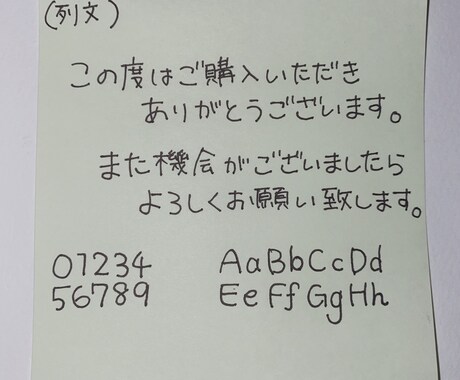 (列文)
この度はご購入いただき
ありがとうございます。
また機会がございましたら
よろしくお願い致します。
01234 AaBbCcDd
56789 EeFfGgHh